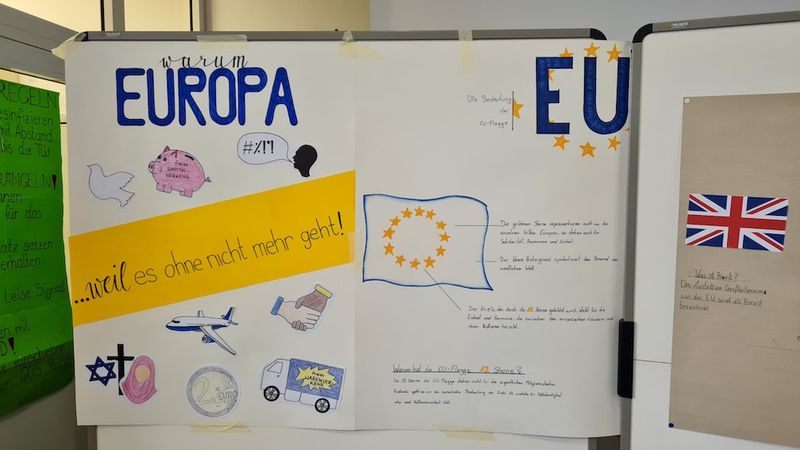 REGELN
esinfizieren
mit Abstand
bis die Tür
RÄNGELN!
für das
atz setzen
erhalten
Leise Signal
en mit
warum
EUROPA
freier
KAPITAL-
VERKEHR
#%!?!
...weil es ohne nicht mehr geht!
2
freier
WARENVER-
KEHR
Die Bedeutung
der
EU-Flagge
EU
Die goldenen Sterne repräsentieren nicht nur die
einzelnen Völker Europas, sie stehen auch für
Solidarität, Harmonie und Einheit.
Der blaue Hintergrund symbolisiert den Himmel der
westlichen Welt.
Der Kreis, der durch die 12 Sterne gebildet wird, steht für die
Einheit und Harmonie, die zwischen den europäischen Ländern und
deren Kulturen herrscht.
Warum hat die EU-Flagge 12 Sterne?
Die 12 Sterne der EU-Flagge stehen nicht für die eigentlichen Mitgliedsstaaten.
Vielmehr geht es um die symbolische Bedeutung der Zahl 12, welche für Vollständigkeit
oder eine Vollkommenheit steht.
Was ist Brexit?
Der Austritt Großbritanniens
aus der EU wird als Brexit
bezeichnet.